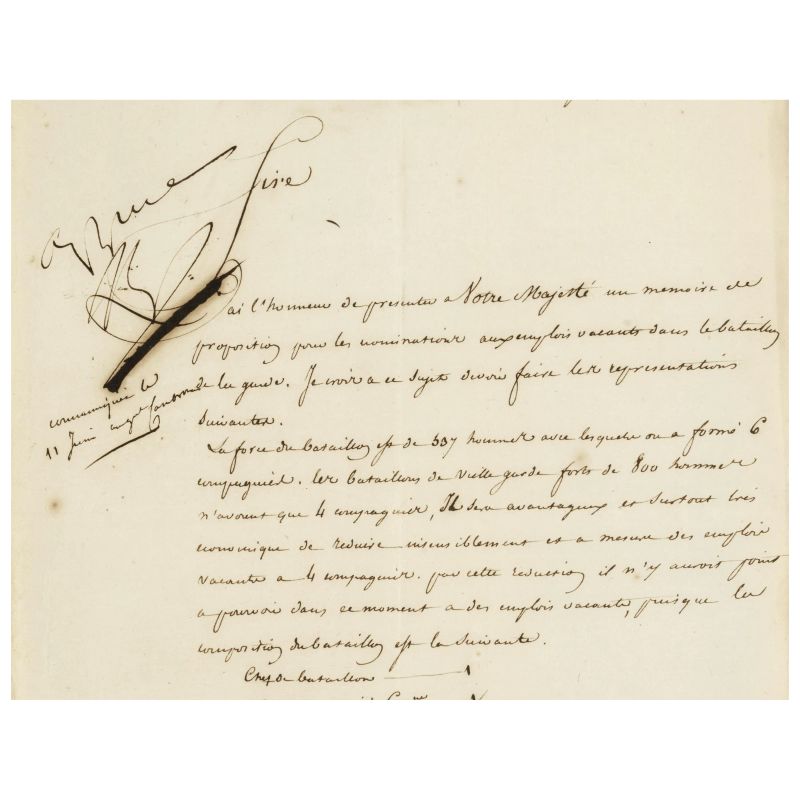 Sire
ai l'honneur de presenter a Votre Majesté un memoire de
proposition pour les nominations aux emplois vacants dans le bataillon
de la garde. Je crois a ce sujet devoir faire les representations
suivantes.
communiquée le
11 Juin au gal Cambronne
La force du bataillon est de 557 hommes avec lesquels on a formé 6
compagnies. les bataillons de vieille garde forts de 800 hommes
n'avoient que 4 compagnies, Il sera avantageux et surtout tres
economique de reduire insensiblement et a mesure des emplois
vacants a 4 compagnies. par cette reduction il n'y auroit point
a pourvoir dans ce moment a des emplois vacants, puisque la
composition du bataillon est la suivante.
Chef de bataillon 1